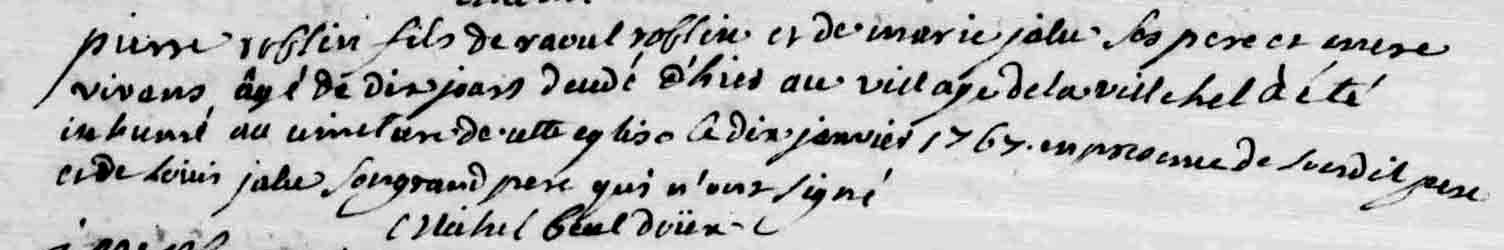 pierre roblin fils de raoul roblin et de marie jalu ses pere et mere
vivans, âgé de dix jours decedé d'hier au village de la ville hel a été
inhumé au cimetiere de cette eglise le dix janvier 1767. en presence de sondit pere
et de Louis jalu son grand pere qui n'ont signé
Michel